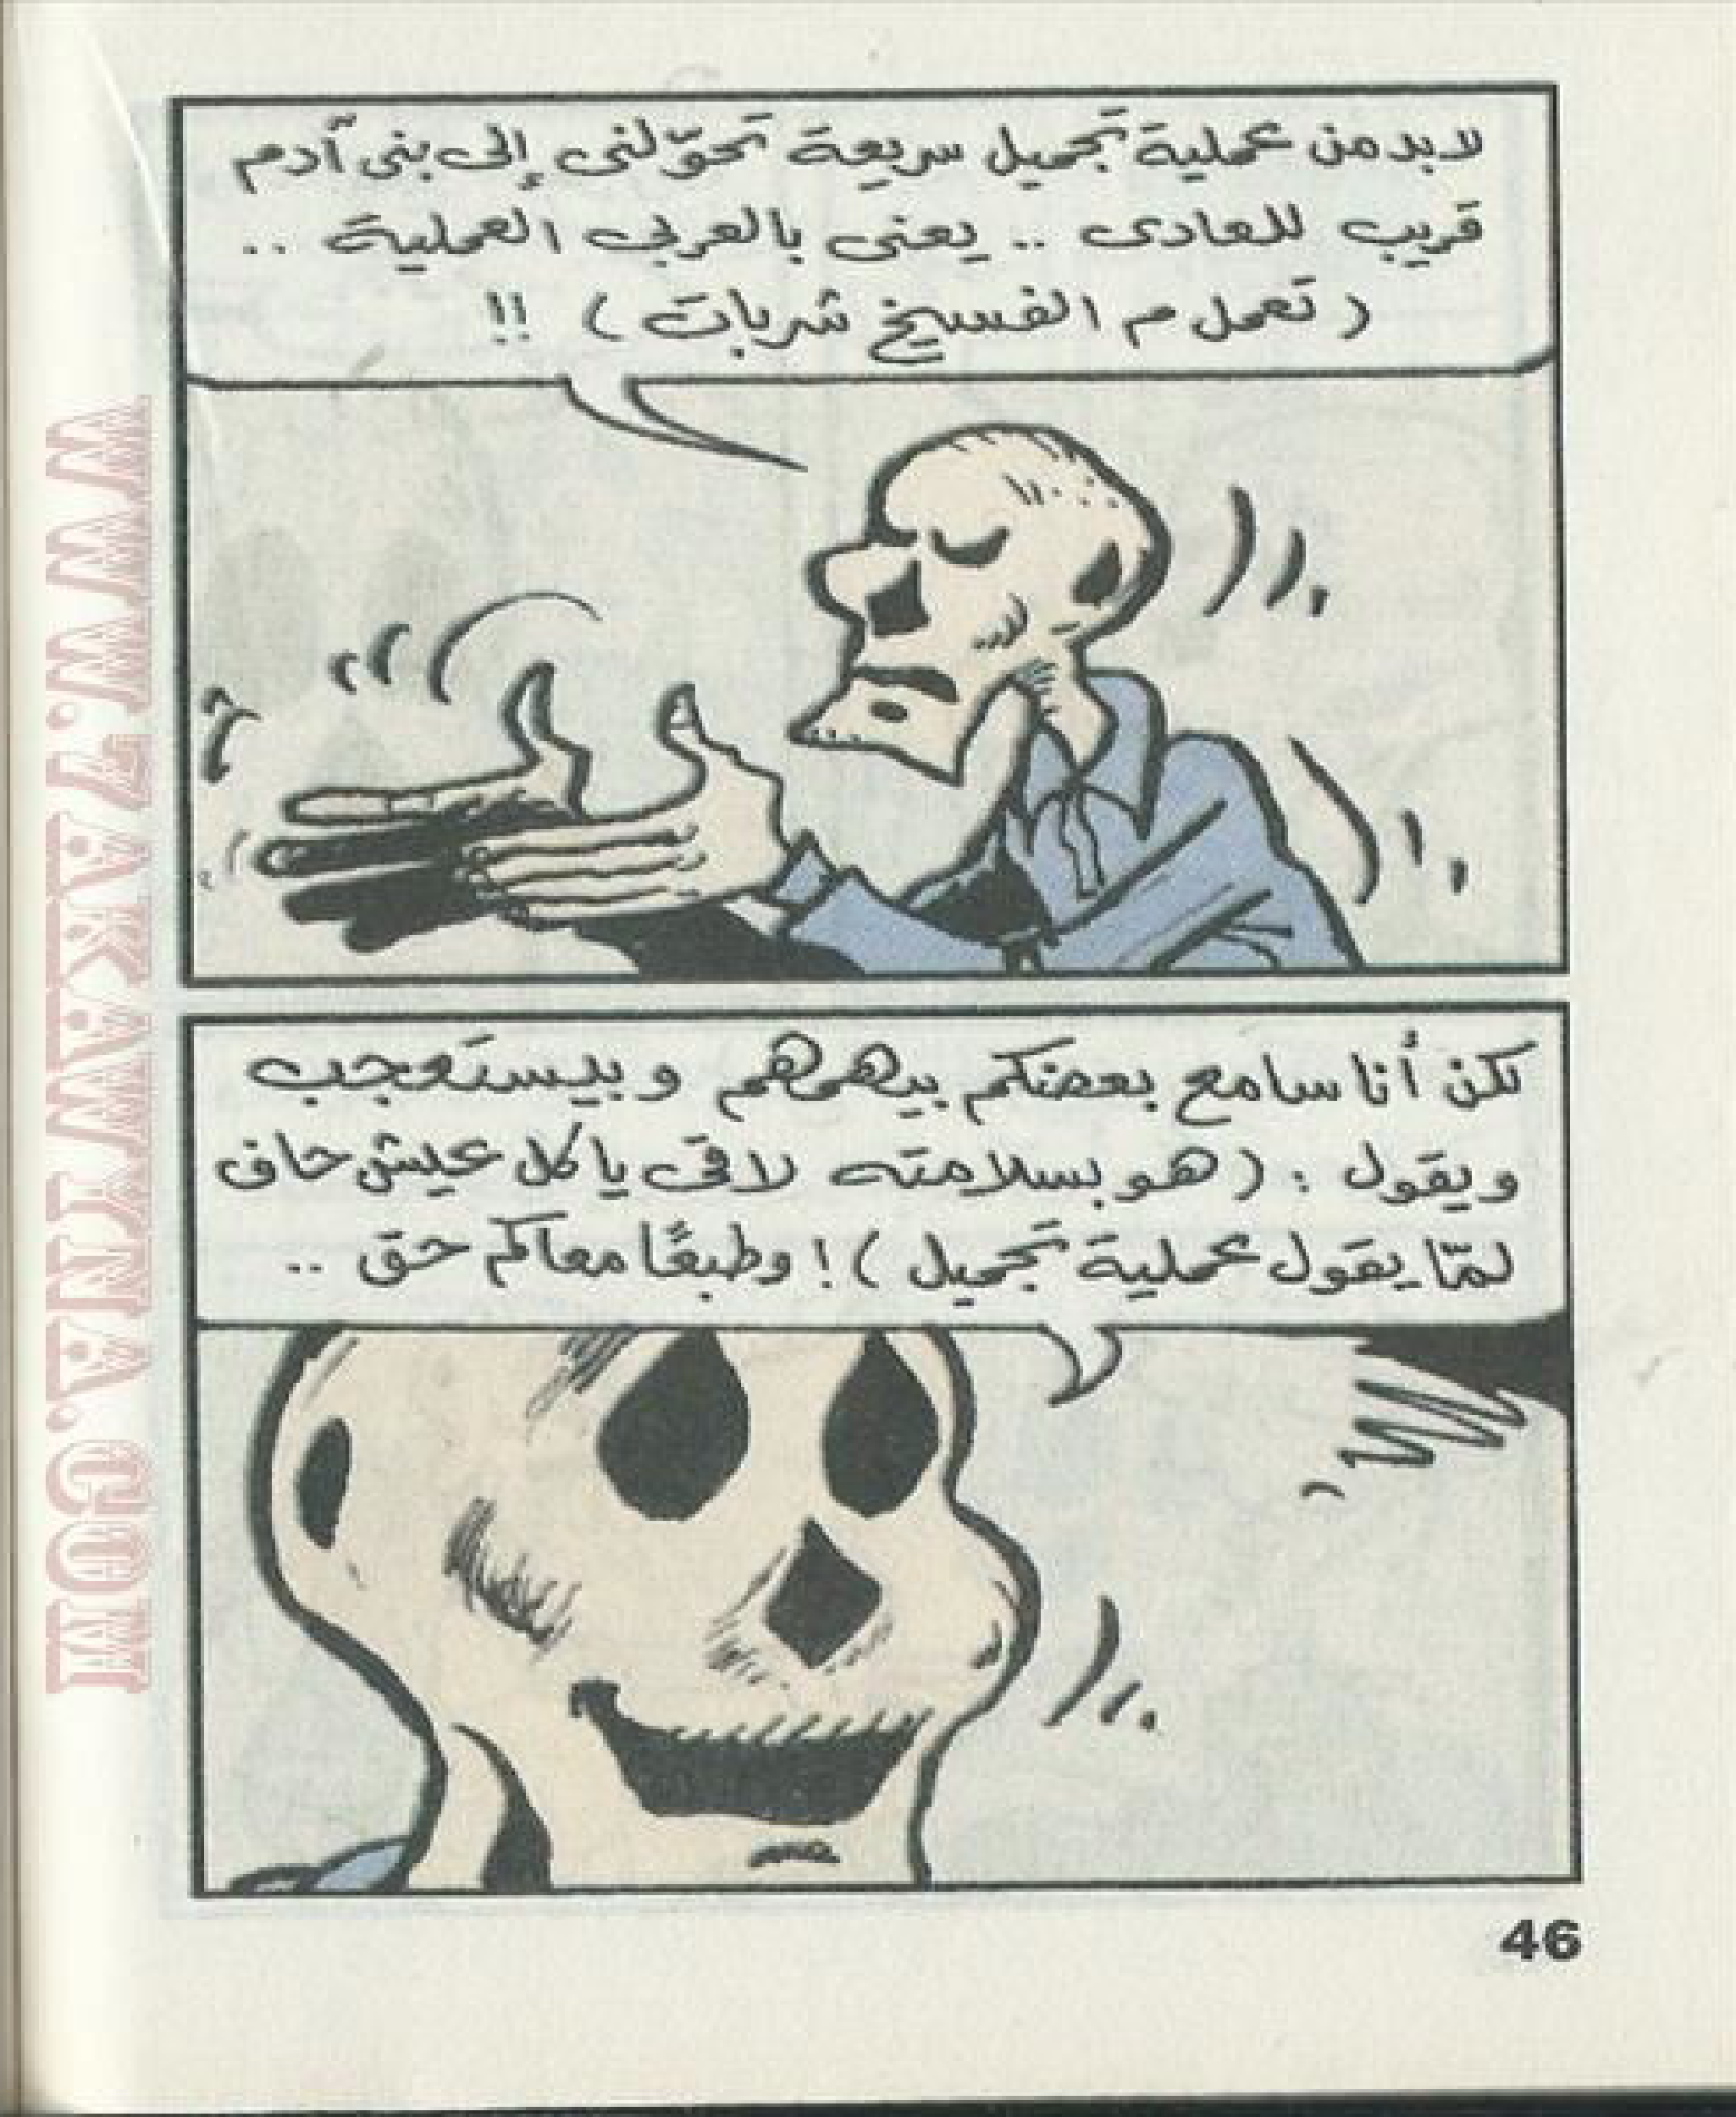 لابد من عملية تجميل سريعة تحوّلنى إلى بنى آدم
قريب للعادى .. يعنى بالعربى العملية ..
( تعمل م الفسيخ شربات ) !!
لكن أنا سامع بعضكم بيهمهم وبيستعجب
ويقول : ( هو بسلامته لاقى ياكل عيش حاف
لمّا يقول عملية تجميل ) ! وطبعًا معاكم حق ..
46
WWW.TAKAWTNA.COM